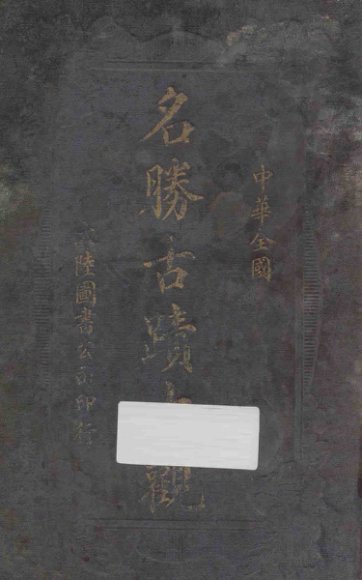 中華全國
名勝古蹟大觀
大陸圖書公司印行